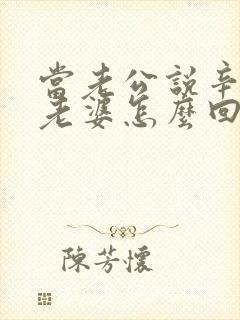 當老公說辛
老婆怎麼回
陳芳懷